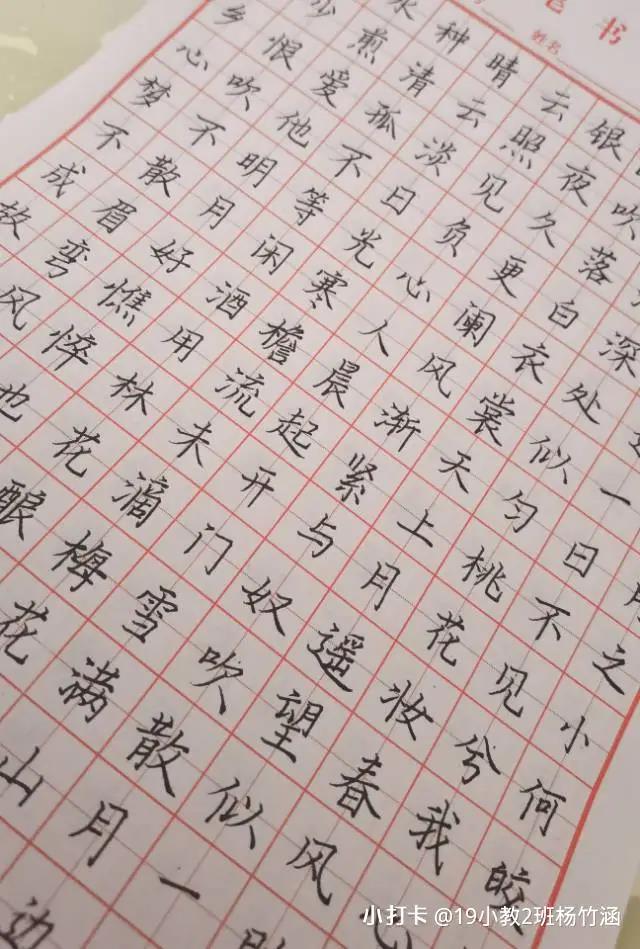 书
姓名
月之小何皎
一日不见兮我心
深处似匀桃花妆春风
吹落白衣裳天上月遥望似一
银夜久更阑风渐紧与奴吹散月边
云照见负心人晨起开门雪满山
晴云淡日光寒檐流未滴梅花
种清孤不等闲酒用林花酿
水煎爱他明月好憔悴也
少恨吹不散眉弯风
乡心梦不成故
小打卡 @19小教2班杨竹涵